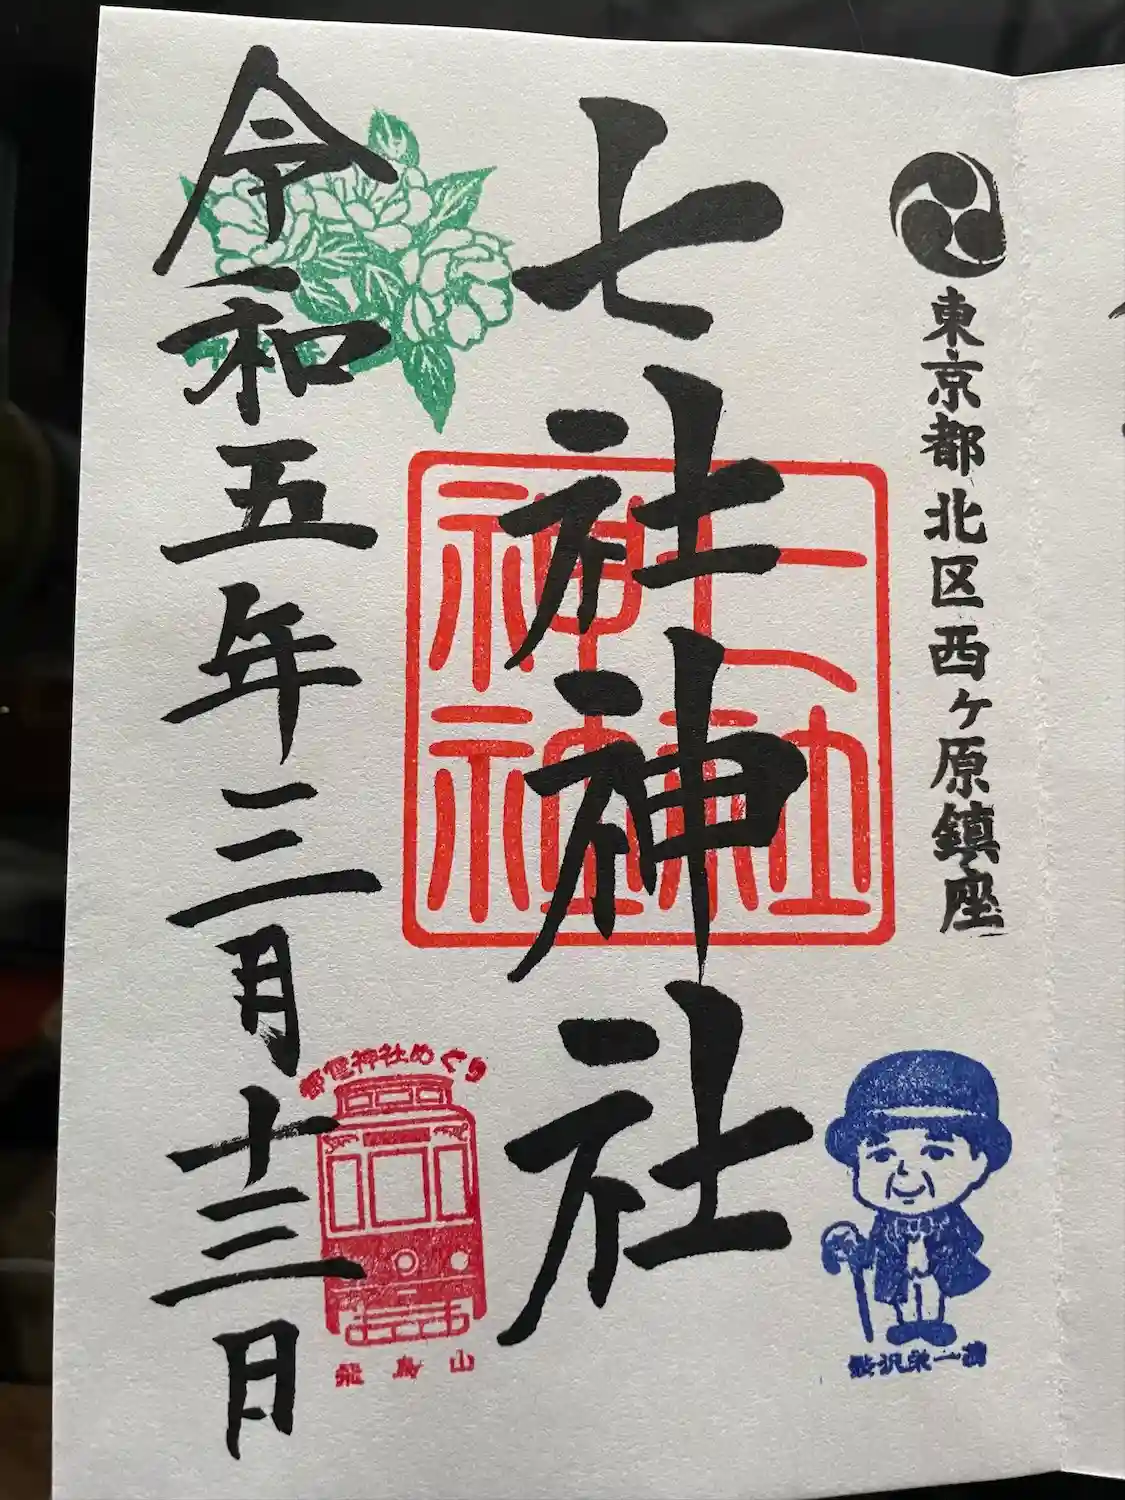 東京都北区西ケ原鎮座
七社神社
七社神社
渋沢栄一翁
令和五年三月十三日
都電神社めぐり
飛鳥山